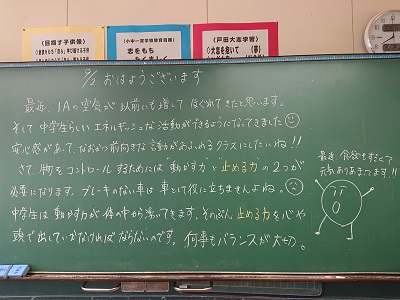 〈目指す子供像〉
〈小中一貫学校教育目標〉
志をもち
〈戸田大志学習〉
大志を抱いて
8/2 おはようございます
最近、1Aの空気が以前にも増してほぐれてきたと思います。
そして中学生らしいエネルギッシュな活動ができるようになってきました
安心感があって、なおかつ前向きな言動があふれるクラスにしたいね!!
さて、物をコントロールするためには"動かす力"と"止める力"の2つが
必要になります。ブレーキのない車は車として役に立ちませんよね。
中学生は動かす力が体の中から湧いてきます。そのぶん止める力を心や
頭で出していかなければならないのです。何事もバランスが大切。
最近食欲もすごくて
元気ありあまってます!!